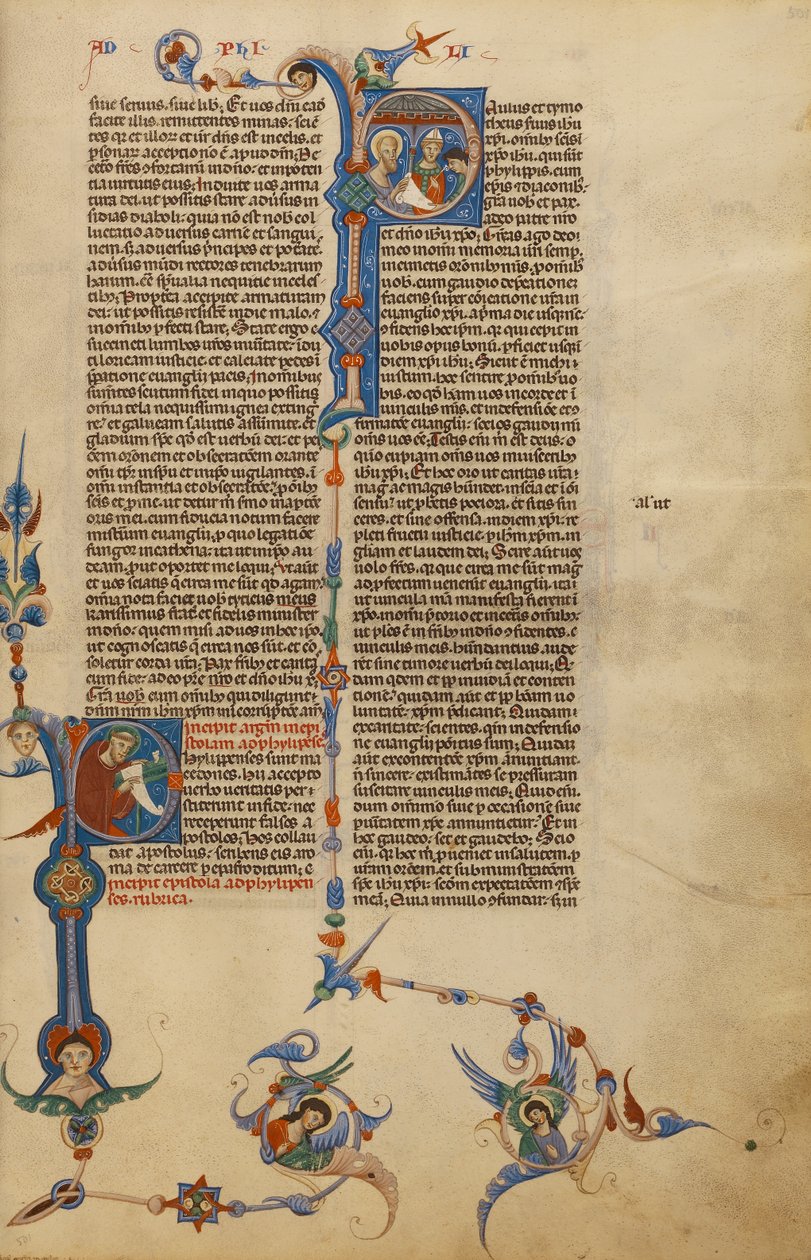 AD PhI LI
siue seruus, siue lib̄. Et uos dn̄i eadē
facite illis, remittentes minas, sciē
tes qꝛ et illoꝝ et ur̄ dn̄s est in celis, et
ꝑsonaꝝ acceptio nō ē apud dm̄. De
cet̄o fr̄es ꝯfortamī in dn̄o, et in poten
tia uirtutis eius. Induite uos arma
tura dei, ut possitis stare adūsus in
sidias diaboli, quia nō est nob̄ col
luctatio aduersus carnē et sangui
nem, s; aduersus pͥncipes et potates,
adūsus mūdi rectores tenebrarum
harum, cōt̄ sp̄ualia nequitie in celes
tibꝰ. Propt̄ea accipite armaturam
dei, ut possitis resist̄e in die malo, ⁊
in om̄ibꝰ ꝑfecti stare. State ergo ⁊
succincti lumbos ur̄os in ūitate, īdu
ti loricam iusticie, et calciati pedes ī
p̄patione euanglii pacis. In om̄ibus
sum̄tes scutum fidei in quo possitis
om̄ia tela nequissimi ignea exting
re, et galeam salutis assumite, et
gladium sp̄c qd̄ est uerbū dei, et ꝑ
om̄em or̄onem et obsecrat̄oem orante
om̄i tp̄r in sp̄u et in ip̄o uigilantes, ī
om̄i instantia et obsecrat̄oe ꝓ om̄ibꝰ
sc̄is et ꝓ me, ut detur m̄ s̄mo in aꝑt̄oe
oris mei, cum fiducia notum facere
mist̄ium euanglii, ꝓ quo legat̄oē
fungor in cathena, ita ut in ip̄o au
deam, ꝓut oportet me loqui. Vt aūt
et uos sciatis q̄ circa me sūt qd agam,
om̄ia nota faciet uob̄ tyticus meus
karissimus frat̄ et fidelis minister
in dn̄o, quem misi ad uos in hoc ip̄o,
ut cognoscatis q̄ circa nos sūt, et co
soletur corda ur̄a. Pax fr̄ibꝰ et caritas
cum fide, a deo pr̄e nr̄o et dn̄o ih̄u x̄.
Gr̄a uob̄ cum om̄ibꝰ qui diligunt
dn̄m nr̄m ih̄m xp̄m in corrupt̄oe. am̄.
Incipit argm̄ in epi
stolam ad phylipēse.
Phylippenses sunt ma
cedones. hii accepto
uerbo ueritatis per
stiterunt in fide, nec
receperunt falsos a
postolos. Hos collau
dat apostolus, scribens eis a ro
ma de carcere ꝑ epafroditum.
Incipit epistola ad phylipen
ses. rubrica.
Paulus et tymo
theus serui ih̄u
xp̄i, om̄ibꝰ sc̄is ī
xp̄o ih̄u, qui sūt
phylippis, cum
ep̄is ⁊ diaconibꝰ.
gr̄a uob̄ et pax
a deo patre nr̄o
et dn̄o ih̄u xp̄o. Gr̄as ago deo
meo in om̄i memoria ur̄i semꝑ,
in cunctis or̄onibꝰ m̄is, ꝓ om̄ibꝰ
uob̄, cum gaudio dep̄cationē
faciens super cōicatione ur̄a in
euanglio xp̄i, a pͥma die usq; nc̄.
ꝯfidens hoc ip̄m, qꝛ qui cepit in
uobis opus bonū, ꝑficiet usq; ī
diem xp̄i ih̄u. Sicut ē michi
iustum, hoc sentire ꝓ om̄ibꝰ uo
bis, eo qd̄ h̄am uos in corde et ī
uinculis m̄is, et in defensiōe et ꝯ
firmat̄oe euanglii, socios gaudii mī
om̄s uos eē. Testis eni m̄ est deus, q
quō cupiam om̄s uos in uisceribꝰ
ih̄u xp̄i. Et hoc oro ut caritas ur̄a,
mag̅ ac magis habundet, in scīa et ī om̄i
sensu, ut ꝓbetis pociora, et sitis sin
ceres, et sine offensa, in diem xp̄i, re
pleti fructu iusticie, ꝑ ih̄m xp̄m, in
gl̄iam et laudem dei. Scire aūt uos
uolo fr̄es, qꝛ que circa me sūt mag̅
ad ꝓfectum uenerūt euanglii, ita ī
ut uincula m̄a manifesta fierent ī
xp̄o, in om̄i p̄torio et in cet̄is om̄ibꝰ,
ut pl̄es ē in fr̄ibꝰ in dn̄o ꝯfidentes,
uinculis meis, habundantius aude
rēt sine timore uerbū dei loqui. Q̄
dam qdem et ꝓp̄ inuidiā et conten
tionē, quidam aūt et ꝓp̄ bonam uo
luntatē xp̄m p̄dicant. Quidam ex
caritate, scientes, qm̄ in defensio
ne euanglii positus sum. Quidā
aūt ex contentōe xp̄m anuntiant
n̄ sincere, existimātes se p̄ssuram
suscitare uinculis meis. Quid eni,
dum om̄i mō siue ꝑ occasionē siue
ꝑ uitatem xp̄c annuntietur. Et in
hoc gaudeo, set et gaudebo. Scio
eni, qꝛ hoc m̄ ꝓueniet in salutem, ꝑ
ur̄am or̄oem, et subministrat̄oem
sp̄c ih̄u xp̄i, scd̄m expectat̄oem ⁊ spē
meā. Quia in nullo ꝯfundar, s; in
al' ut